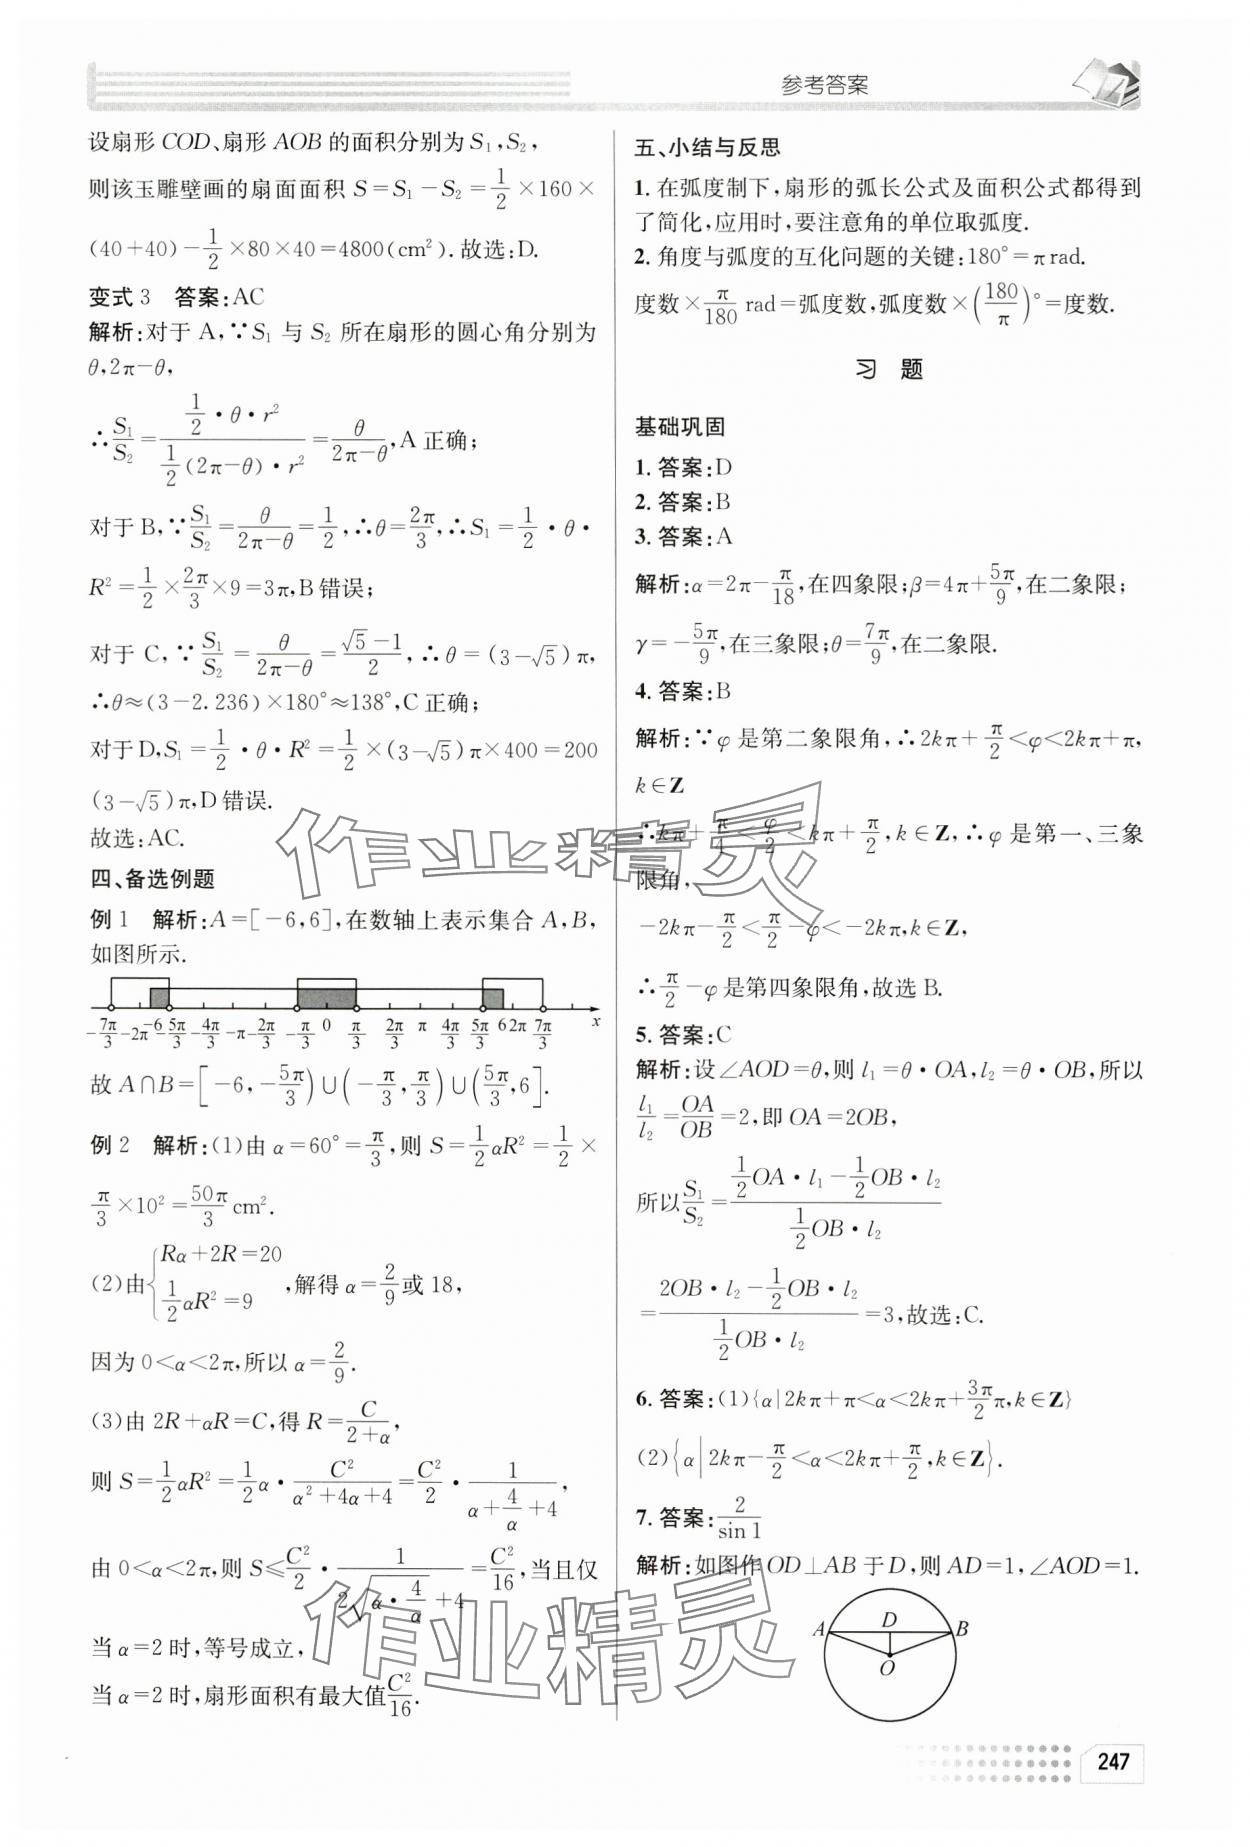 参考答案
设扇形 COD、扇形 AOB 的面积分别为 S₁,S₂,
则该玉雕壁画的扇面面积 S=S₁-S₂=1/2×160×
(40+40)-1/2×80×40=4800(cm²).故选:D.
变式 3 答案:AC
解析:对于 A,∵S₁ 与 S₂ 所在扇形的圆心角分别为
θ,2π-θ,
∴S₁/S₂=(1/2·θ·r²)/(1/2(2π-θ)·r²)=θ/(2π-θ),A 正确;
对于 B,∵S₁/S₂=θ/(2π-θ)=1/2,∴θ=2π/3,∴S₁=1/2·θ·
R²=1/2×2π/3×9=3π,B 错误;
对于 C,∵S₁/S₂=θ/(2π-θ)=(√5-1)/2,∴θ=(3-√5)π,
∴θ≈(3-2.236)×180°≈138°,C 正确;
对于 D,S₁=1/2·θ·R²=1/2×(3-√5)π×400=200
(3-√5)π,D 错误.
故选:AC.
四、备选例题
例 1 解析:A=[-6,6],在数轴上表示集合 A,B,
如图所示.
-7π/3 -2π -6 -5π/3 -4π/3 -π -2π/3 -π/3 0 π/3 2π/3 π 4π/3 5π/3 6 2π 7π/3 x
故 A∩B=[-6,-5π/3)∪(-π/3,π/3)∪(5π/3,6].
例 2 解析:(1)由 α=60°=π/3,则 S=1/2αR²=1/2×
π/3×10²=50π/3 cm².
(2)由{Rα+2R=20
1/2αR²=9,解得 α=2/9或 18,
因为 0<α<2π,所以 α=2/9.
(3)由 2R+αR=C,得 R=C/(2+α),
则 S=1/2αR²=1/2α·C²/(α²+4α+4)=C²/2·1/(α+4/α+4),
由 0<α<2π,则 S≤C²/2·1/(2√(α·4/α)+4)=C²/16,当且仅
当 α=2 时,等号成立,
当 α=2 时,扇形面积有最大值C²/16.
五、小结与反思
1. 在弧度制下,扇形的弧长公式及面积公式都得到
了简化,应用时,要注意角的单位取弧度.
2. 角度与弧度的互化问题的关键:180°=π rad.
度数×π/180 rad=弧度数,弧度数×(180/π)°=度数.
习 题
基础巩固
1. 答案:D
2. 答案:B
3. 答案:A
解析:α=2π-π/18,在四象限;β=4π+5π/9,在二象限;
γ=-5π/9,在三象限;θ=7π/9,在二象限.
4. 答案:B
解析:∵φ 是第二象限角,∴2kπ+π/2<φ<2kπ+π,
k∈Z
∴kπ+π/4<φ/2<kπ+π/2,k∈Z,∴φ 是第一、三象
限角,
-2kπ-π/2<π/2-φ<-2kπ,k∈Z,
∴π/2-φ是第四象限角,故选 B.
5. 答案:C
解析:设∠AOD=θ,则 l₁=θ·OA,l₂=θ·OB,所以
l₁/l₂=OA/OB=2,即 OA=2OB,
所以S₁/S₂=(1/2OA·l₁-1/2OB·l₂)/(1/2OB·l₂)
=(2OB·l₂-1/2OB·l₂)/(1/2OB·l₂)=3,故选:C.
6. 答案:(1){α|2kπ+π<α<2kπ+3π/2π,k∈Z}
(2){α|2kπ-π/2<α<2kπ+π/2,k∈Z}.
7. 答案:2/sin 1
解析:如图作 OD⊥AB 于 D,则 AD=1,∠AOD=1.
A D B
O
作业精灵
作业精灵
247